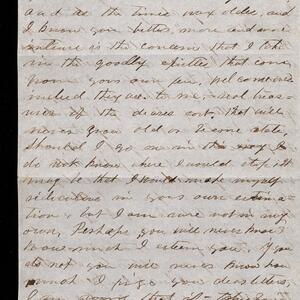 and as the times wax older, and
I know you better, more and more
is the concern that I take
in the goodly epistles that come
from your own pen, welcome
indeed they are to me,
of the dearest sort, that will
never grow old or become stale,
should I go on in this way I
do not know where I would stop, it
may be that I would make myself
ridiculous in your own estima
tion, but I am sure not in my
own, Perhaps you will never know
how much I esteem you. If you
do not you will never know how
much I prize your dear letters,